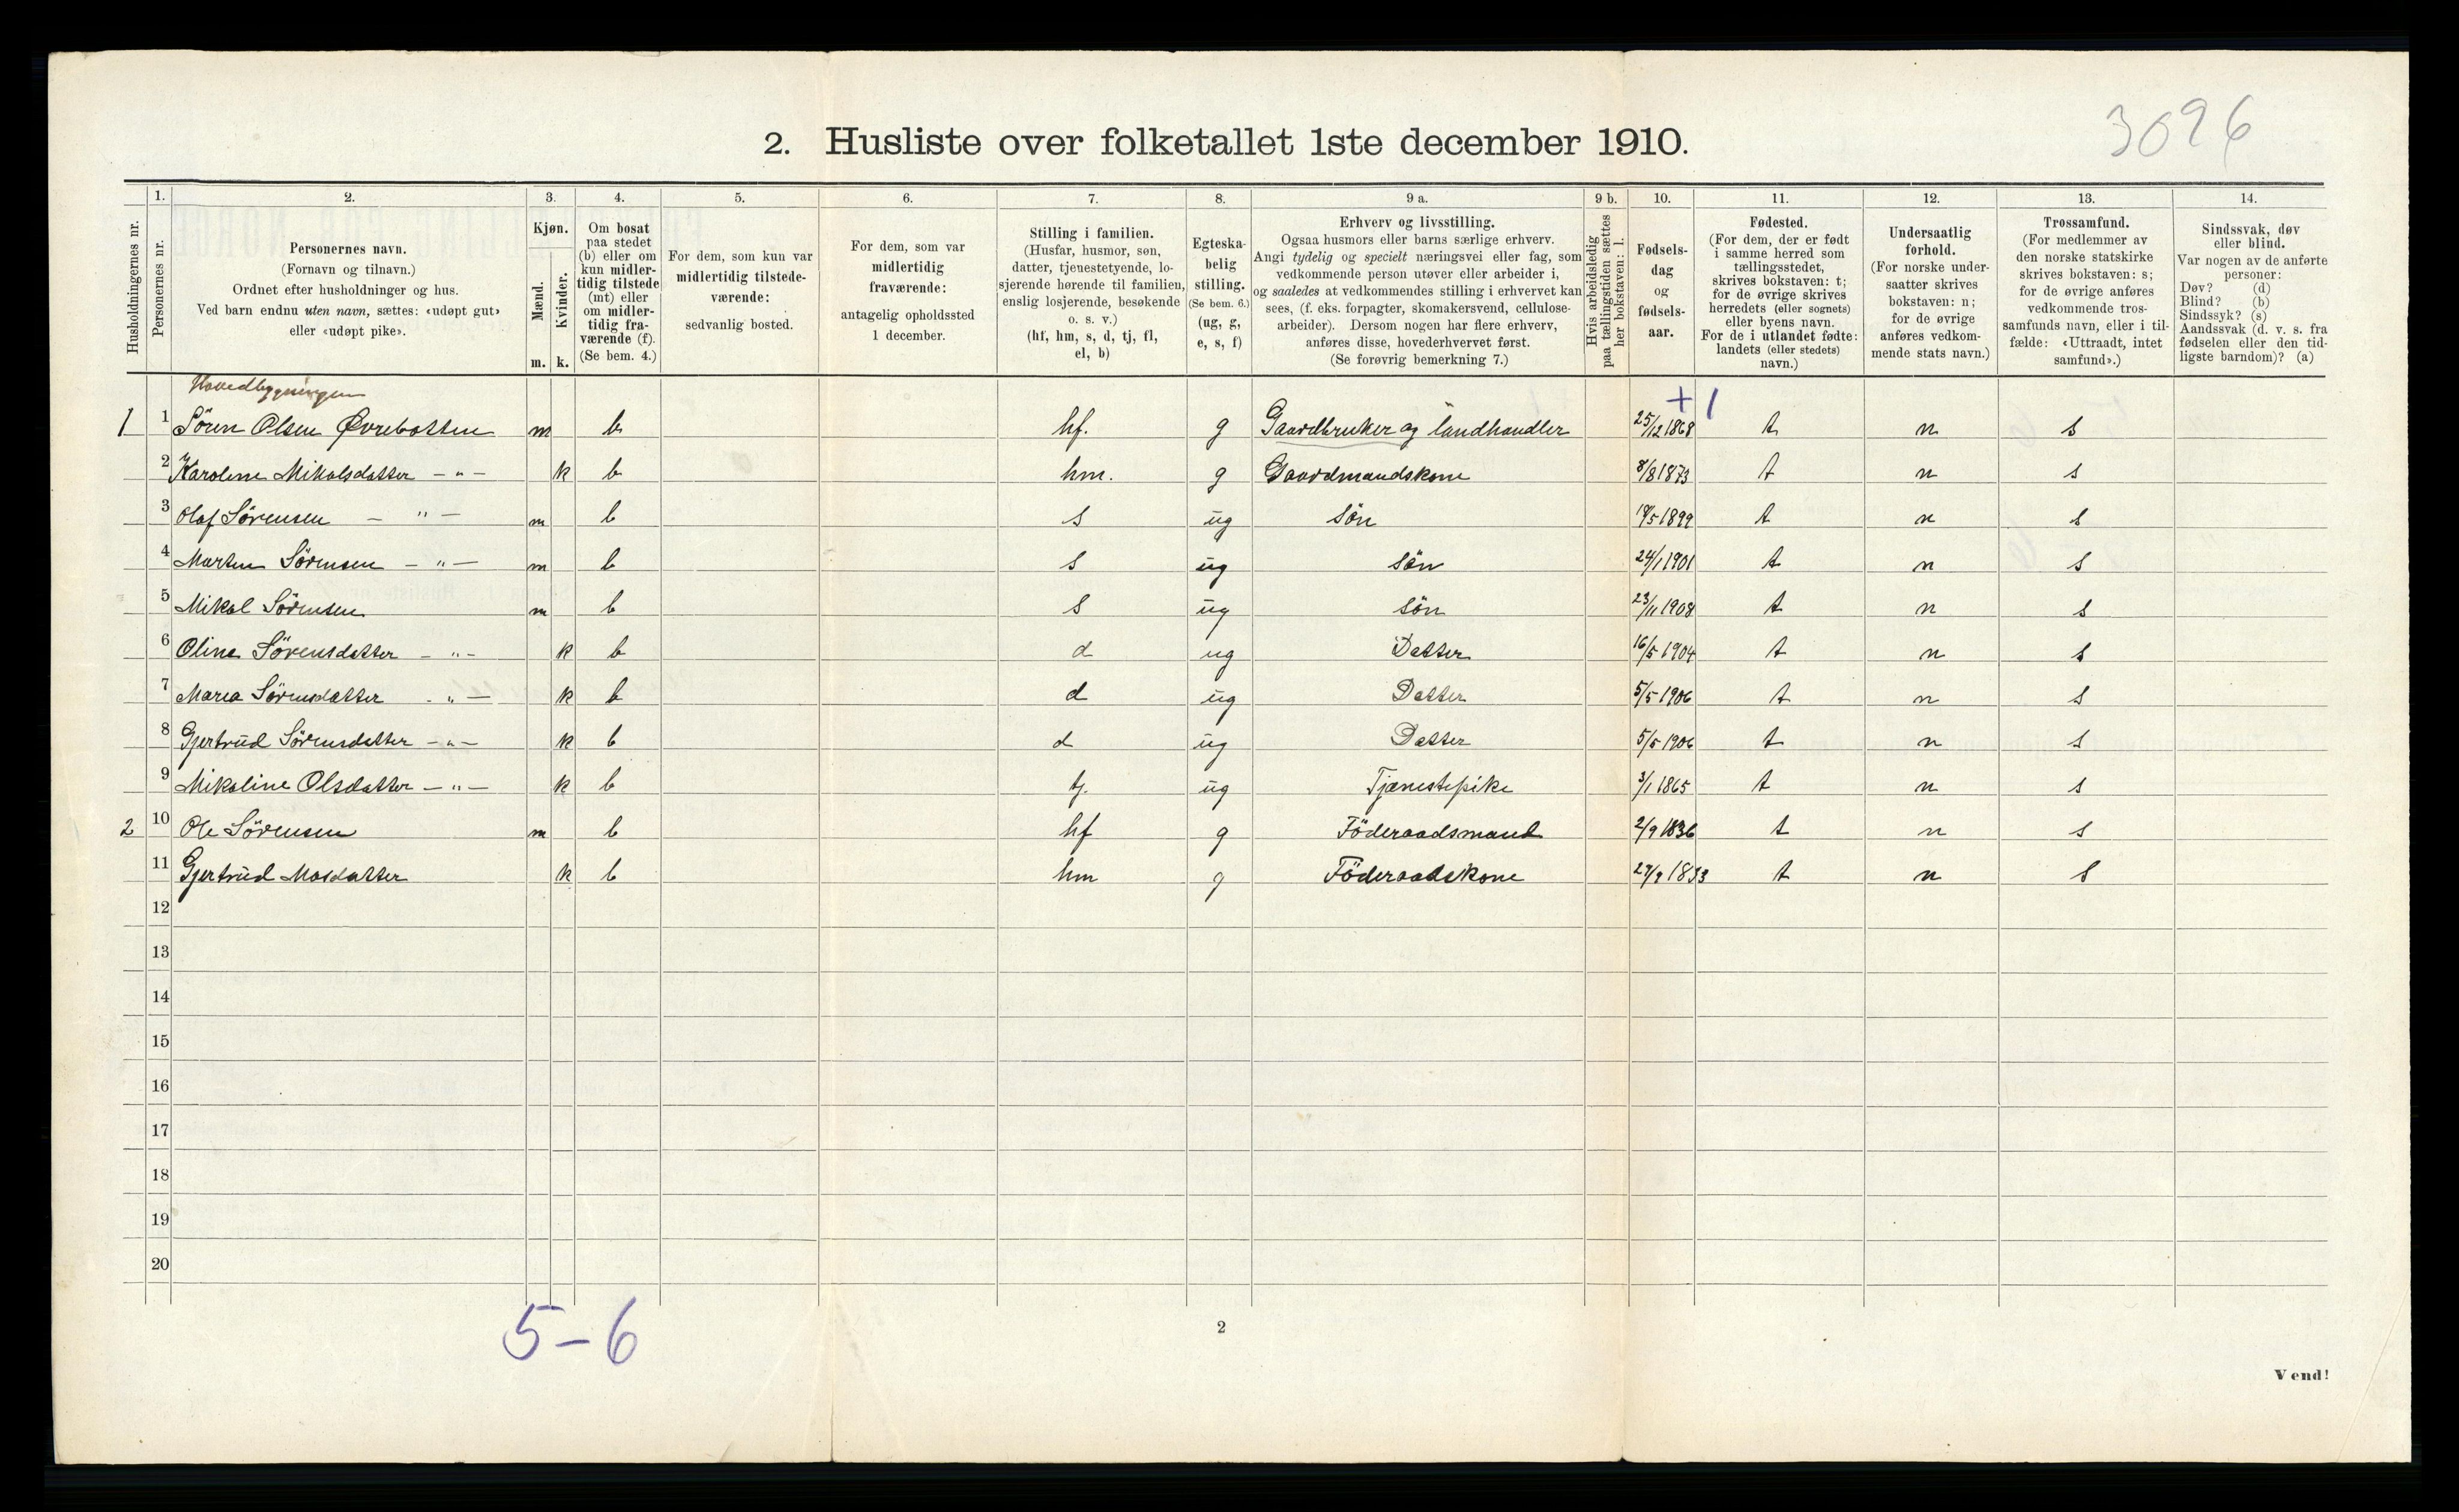 3096
2. Husliste over folketallet 1ste december 1910.
Husholdningernes nr.
1.
Personernes nr.
2.
Personernes navn.
(Fornavn og tilnavn.)
Ordnet efter husholdninger og hus.
Ved barn endnu uten navn, sættes: «udøpt gut»
eller «udøpt pike».
3.
Kjøn.
Mænd.
Kvinder.
m. k.
4.
Om bosat
paa stedet
(b) eller om
kun midler-
tidig tilstede
(mt) eller
om midler-
tidig fra-
værende (f).
(Se bem. 4.)
5.
For dem, som kun var
midlertidig tilstede-
værende:
sedvanlig bosted.
6.
For dem, som var
midlertidig
fraværende:
antagelig opholdssted
1 december.
7.
Stilling i familien.
(Husfar, husmor, søn,
datter, tjenestetyende, lo-
sjerende hørende til familien,
enslig losjerende, besøkende
o. s. v.)
(hf, hm, s, d, tj, fl,
el, b)
8.
Egteska-
belig
stilling.
(Se bem. 6.)
(ug, g,
e, s, f)
9 a.
Erhverv og livsstilling.
Ogsaa husmors eller barns særlige erhverv.
Angi tydelig og specielt næringsvei eller fag, som
vedkommende person utøver eller arbeider i,
og saaledes at vedkommendes stilling i erhvervet kan
sees, (f. eks. forpagter, skomakersvend, cellulose-
arbeider). Dersom nogen har flere erhverv,
anføres disse, hovederhvervet først.
(Se forøvrig bemerkning 7.)
9 b.
Hvis arbeidsledig
paa tællingstiden sættes
her bokstaven: l.
10.
Fødsels-
dag
og
fødsels-
aar.
11.
Fødested.
(For dem, der er født
i samme herred som
tællingsstedet,
skrives bokstaven: t;
for de øvrige skrives
herredets (eller sognets)
eller byens navn.
For de i utlandet fødte:
landets (eller stedets)
navn.)
12.
Undersaatlig
forhold.
(For norske under-
saatter skrives
bokstaven: n;
for de øvrige
anføres vedkom-
mende stats navn.)
13.
Trossamfund.
(For medlemmer av
den norske statskirke
skrives bokstaven: s;
for de øvrige anføres
vedkommende tros-
samfunds navn, eller i til-
fælde: «Uttraadt, intet
samfund».)
14.
Sindssvak, døv
eller blind.
Var nogen av de anførte
personer:
Døv? (d)
Blind? (b)
Sindssyk? (s)
Aandssvak (d. v. s. fra
fødselen eller den tid-
ligste barndom)? (a)
Hovedbygningen
+ 1
1 1 Sören Olsen Øvrebotten m b hf. g Gaardbruker og landhandler 25/12 1868 t n s
2 Karoline Mikalsdatter — " — k b hm. g Gaardmandskone 8/8 1873 t n s
3 Olaf Sörensen — " — m b s ug sön 19/5 1899 t n s
4 Marten Sörensen — " — m b s ug sön 24/1 1901 t n s
5 Mikal Sörensen m b s ug sön 23/11 1908 t n s
6 Oline Sörensdatter — " — k b d ug Datter 16/5 1904 t n s
7 Maria Sörensdatter — " — k b d ug Datter 5/5 1906 t n s
8 Gjertrud Sörensdatter — " — k b d ug Datter 5/5 1906 t n s
9 Mikaline Olsdatter — " — k b tj. ug Tjænestepike 3/1 1865 t n s
2 10 Ole Sörensen m b hf g Föderaadsmand 2/9 1836 t n s
11 Gjertrud Masdatter k b hm g Föderaadskone 27/9 1833 t n s
12
13
14
15
16
17
18
19
20
5 - 6
2
Vend!